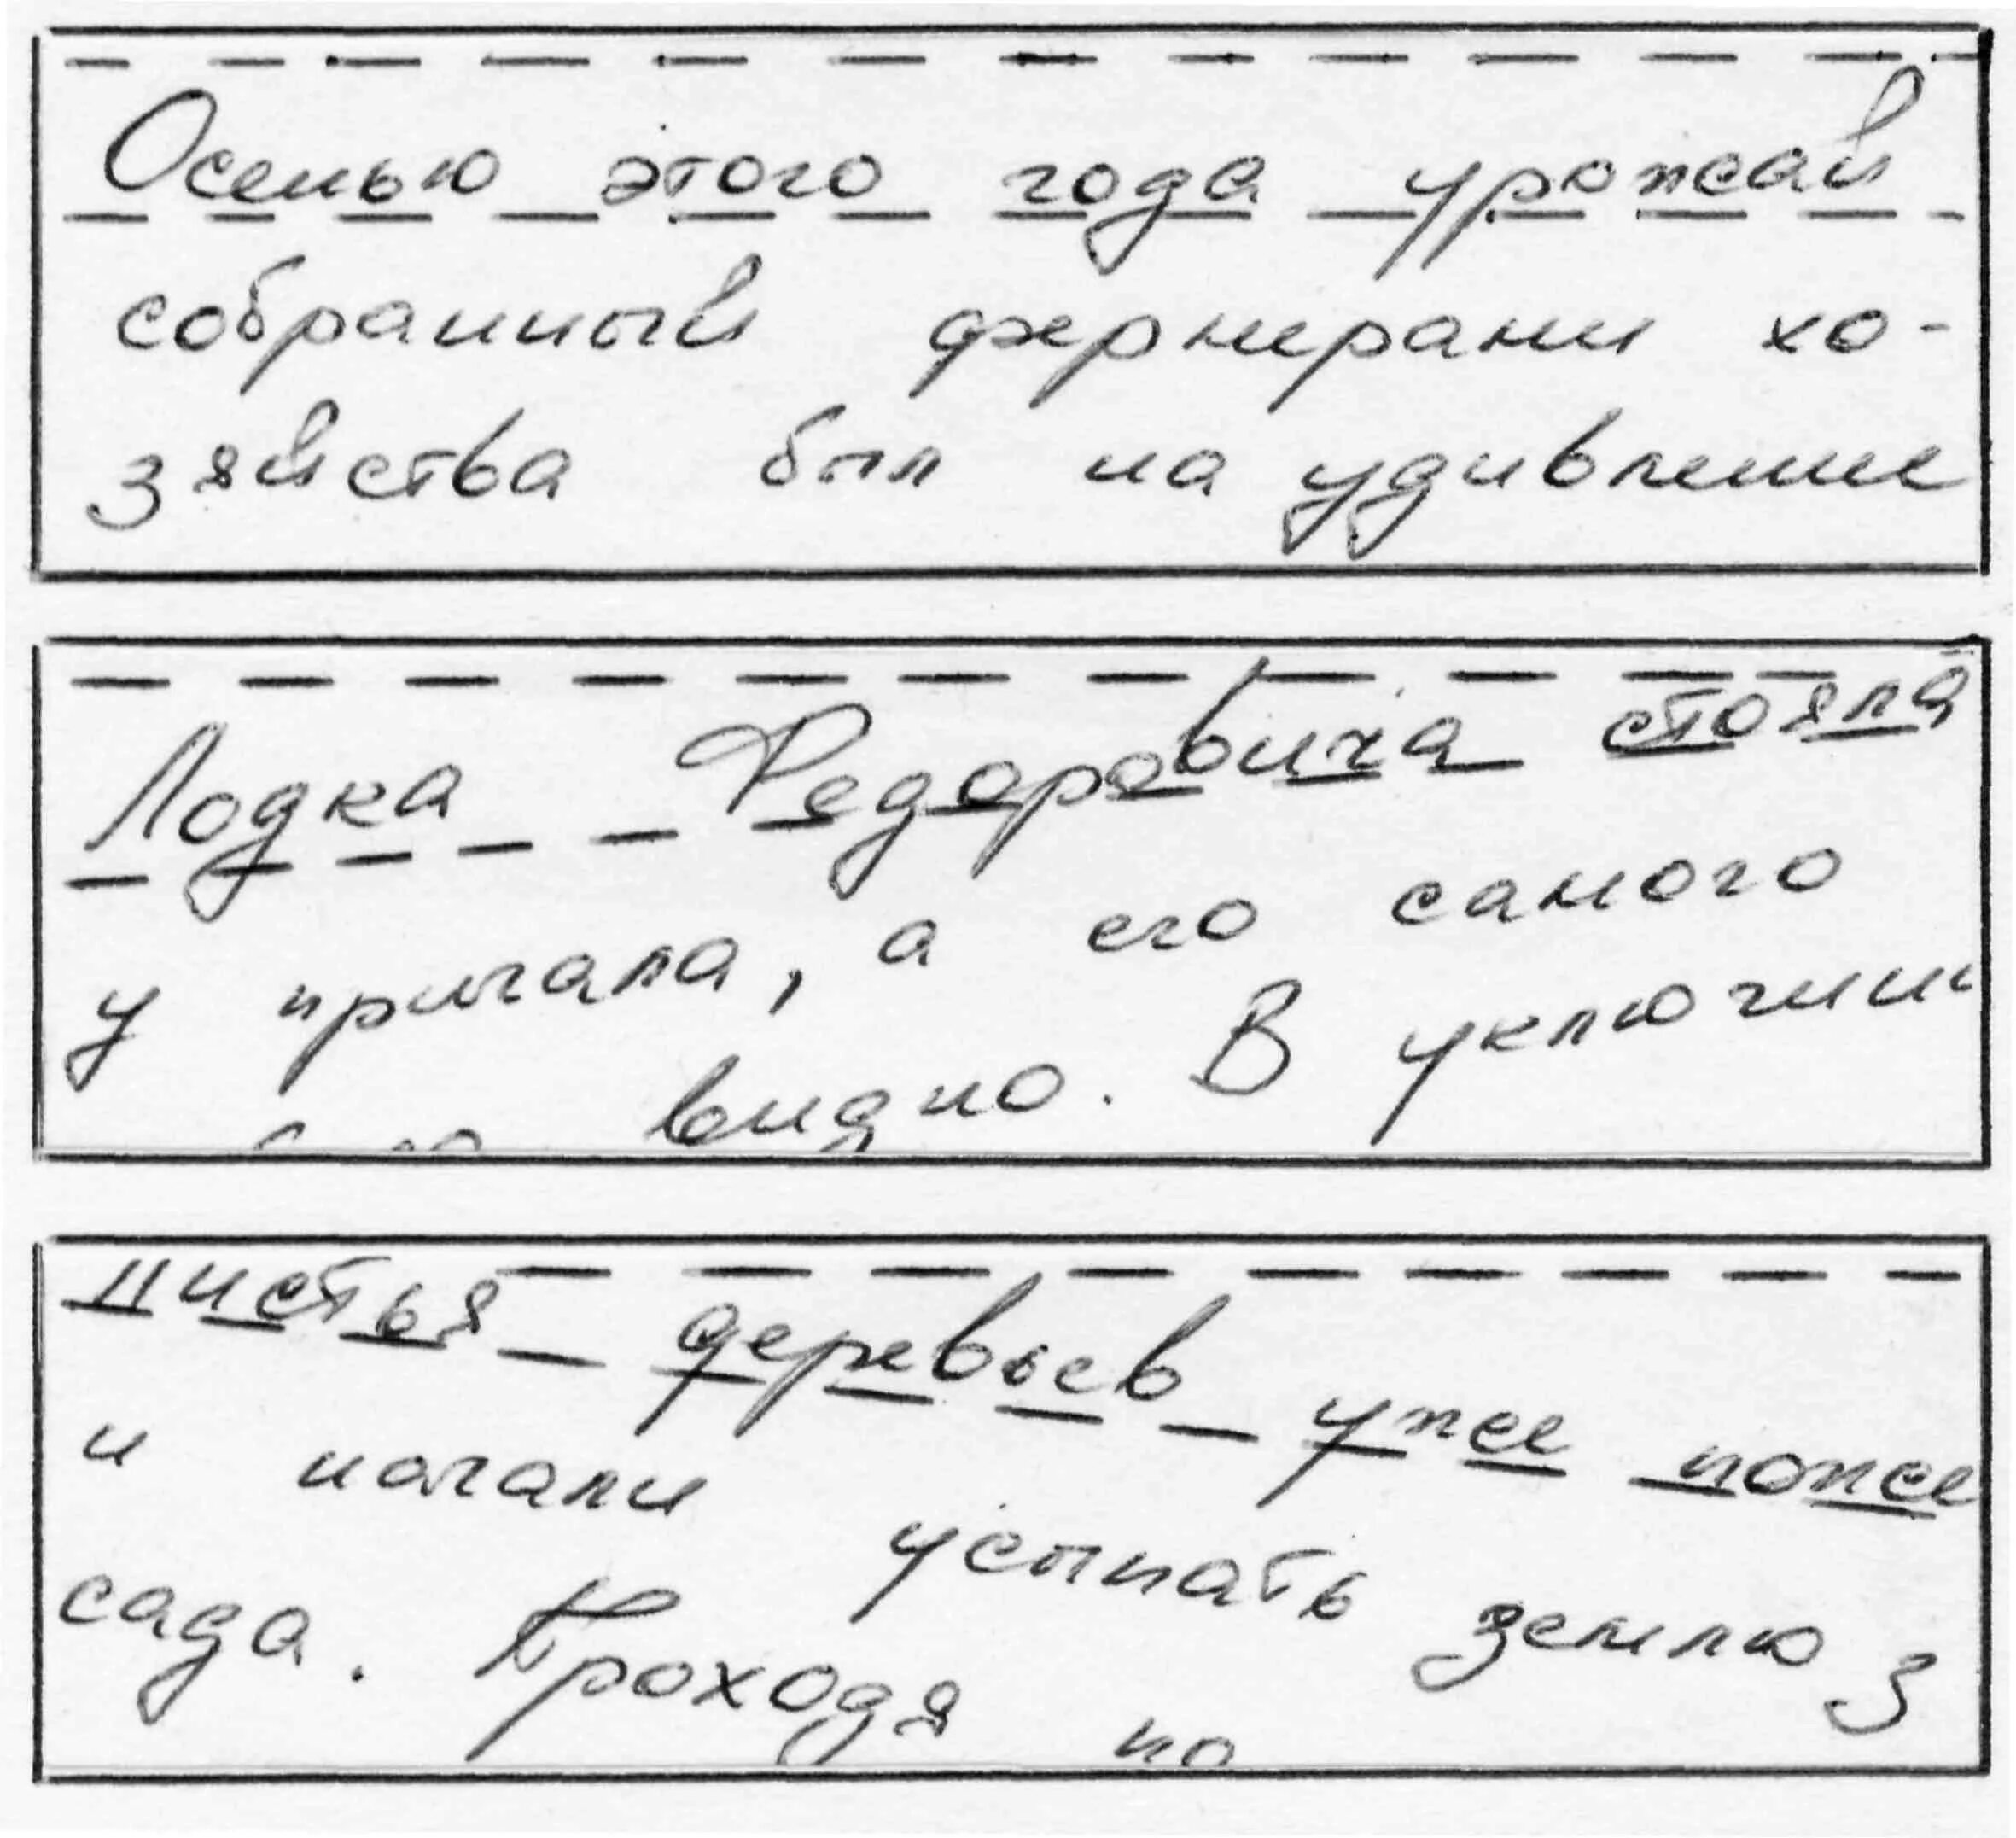 Осенью этого года урожай
собранный фермерами хо-
зяйства был на удивление
Лодка Федоровича стояла
у причала, а его самого
видно. В уключин
Листья деревьев уже пожел
и начали усыпать землю з
сада. Проходя по